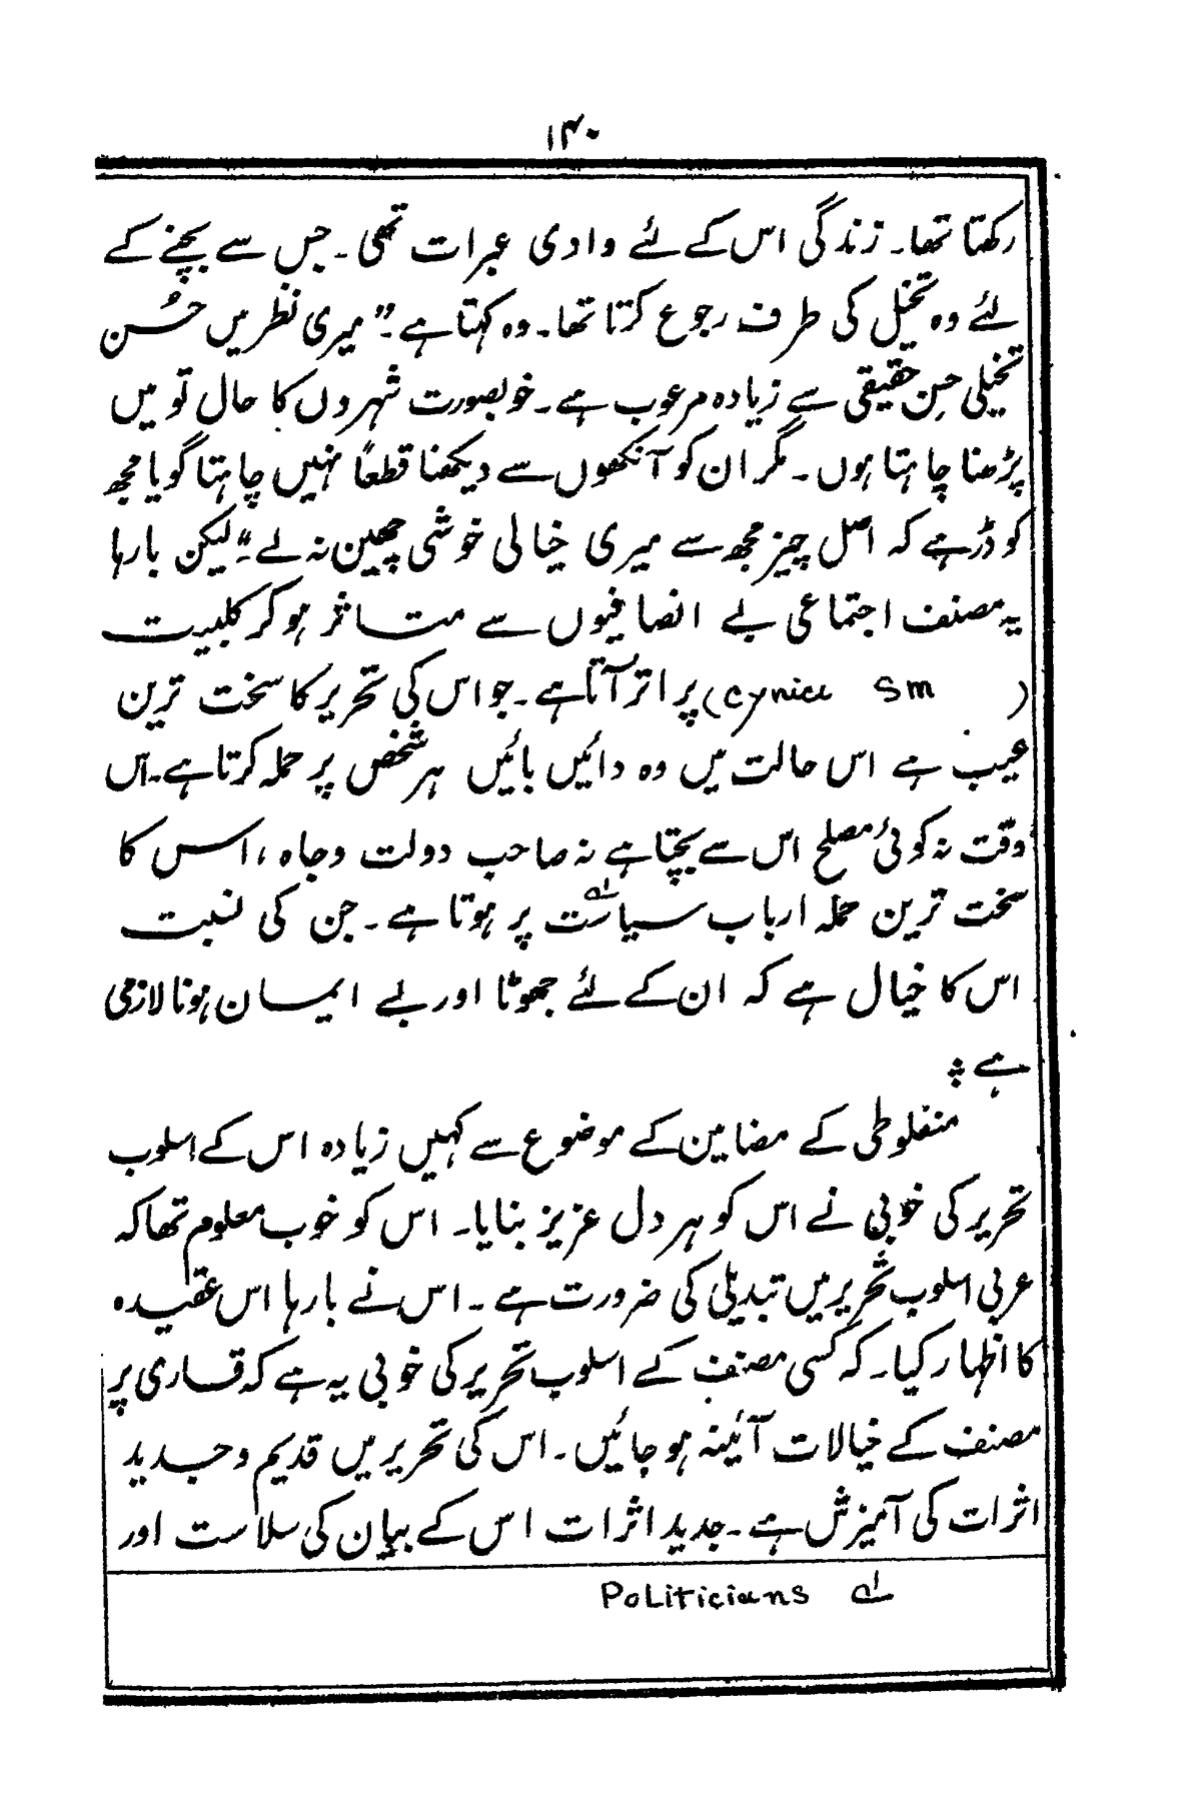 ۱۴۰
رکھتا تھا۔ زندگی اس کے لئے وادی عبرات تھی۔ جس سے بچنے کے
لئے وہ تخیل کی طرف رجوع کرتا تھا۔ وہ کہتا ہے۔ "میری نظر میں حُسن
تخیلی حسن حقیقی سے زیادہ مرعوب ہے۔ خوبصورت شہروں کا حال تو میں
پڑھنا چاہتا ہوں۔ مگر ان کو آنکھوں سے دیکھنا قطعاً نہیں چاہتا گویا مجھ
کو ڈر ہے کہ اصل چیز مجھ سے میری خیالی خوشی چھین نہ لے۔" لیکن بارہا
یہ مصنف اجتماعی بے انصافیوں سے متاثر ہو کر کلبیت
(cynice sm) پر اتر آتا ہے۔ جو اس کی تحریر کا سخت ترین
عیب ہے اس حالت میں وہ دائیں بائیں ہر شخص پر حملہ کرتا ہے۔ اس
وقت نہ کوئی مصلح اس سے بچتا ہے نہ صاحب دولت وجاہ ، اس کا
سخت ترین حملہ ارباب سیاست لے پر ہوتا ہے۔ جن کی نسبت
اس کا خیال ہے کہ ان کے لئے جھوٹا اور بے ایمان ہونا لازمی
ہے ؞
منفلوطی کے مضامین کے موضوع سے کہیں زیادہ اس کے اسلوب
تحریر کی خوبی نے اس کو ہر دل عزیز بنایا۔ اس کو خوب معلوم تھا کہ
عربی اسلوب تحریر میں تبدیلی کی ضرورت ہے۔ اس نے بارہا اس عقیدہ
کا اظہار کیا۔ کہ کسی مصنف کے اسلوب تحریر کی خوبی یہ ہے کہ قاری پر
مصنف کے خیالات آئینہ ہو جائیں۔ اس کی تحریر میں قدیم و جدید
اثرات کی آمیزش ہے۔ جدید اثرات اس کے بیان کی سلاست اور
لے Politicians